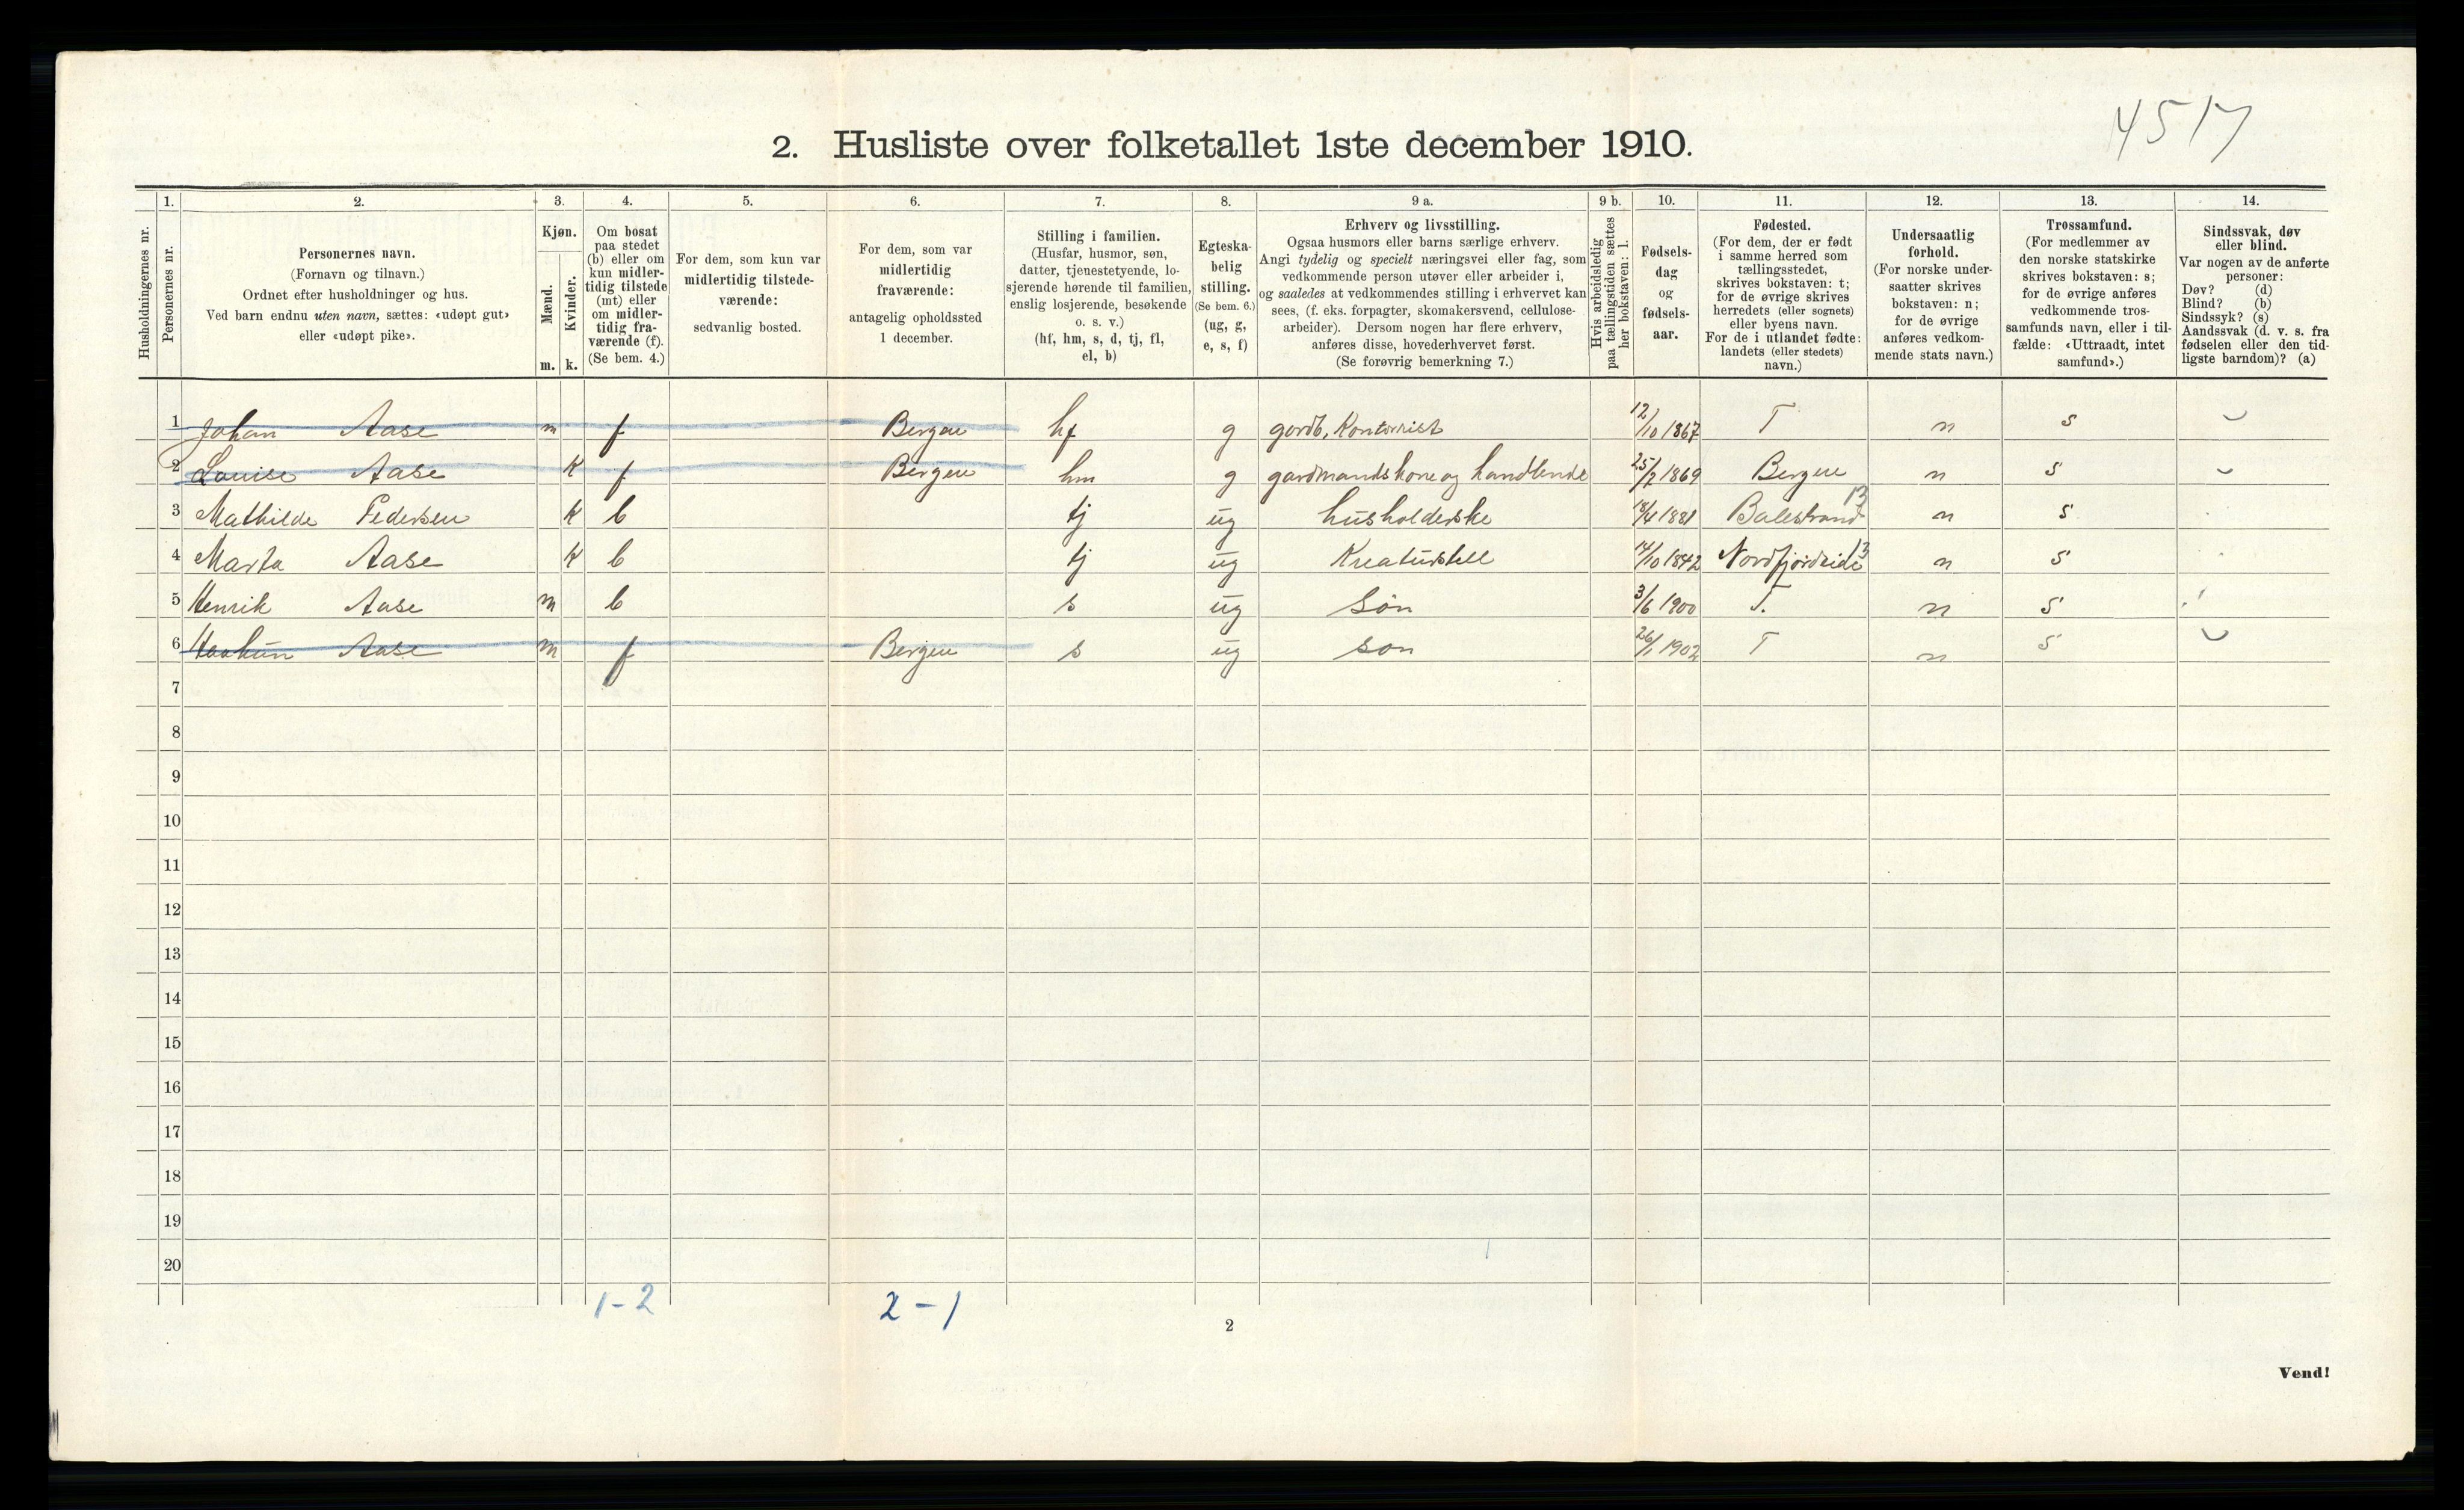 4517
2. Husliste over folketallet 1ste december 1910.
Husholdningernes nr.
1. Personernes nr.
2. Personernes navn. (Fornavn og tilnavn.) Ordnet efter husholdninger og hus. Ved barn endnu uten navn, sættes: «udøpt gut» eller «udøpt pike».
3. Kjøn. Mænd. m. Kvinder. k.
4. Om bosat paa stedet (b) eller om kun midlertidig tilstede (mt) eller om midlertidig fraværende (f). (Se bem. 4.)
5. For dem, som kun var midlertidig tilstedeværende: sedvanlig bosted.
6. For dem, som var midlertidig fraværende: antagelig opholdssted 1 december.
7. Stilling i familien. (Husfar, husmor, søn, datter, tjenestetyende, losjerende hørende til familien, enslig losjerende, besøkende o. s. v.) (hf, hm, s, d, tj, fl, el, b)
8. Egteskabelig stilling. (Se bem. 6.) (ug, g, e, s, f)
9 a. Erhverv og livsstilling. Ogsaa husmors eller barns særlige erhverv. Angi tydelig og specielt næringsvei eller fag, som vedkommende person utøver eller arbeider i, og saaledes at vedkommendes stilling i erhvervet kan sees, (f. eks. forpagter, skomakersvend, cellulosearbeider). Dersom nogen har flere erhverv, anføres disse, hovederhvervet først. (Se forøvrig bemerkning 7.)
9 b. Hvis arbeidsledig paa tællingstiden sættes her bokstaven: l.
10. Fødselsdag og fødselsaar.
11. Fødested. (For dem, der er født i samme herred som tællingsstedet, skrives bokstaven: t; for de øvrige skrives herredets (eller sognets) eller byens navn. For de i utlandet fødte: landets (eller stedets) navn.)
12. Undersaatlig forhold. (For norske undersaatter skrives bokstaven: n; for de øvrige anføres vedkommende stats navn.)
13. Trossamfund. (For medlemmer av den norske statskirke skrives bokstaven: s; for de øvrige anføres vedkommende trossamfunds navn, eller i tilfælde: «Uttraadt, intet samfund».)
14. Sindssvak, døv eller blind. Var nogen av de anførte personer: Døv? (d) Blind? (b) Sindssyk? (s) Aandssvak (d. v. s. fra fødselen eller den tidligste barndom)? (a)
1 Johan Aase m f Bergen hf g gardb, Kontorrist 12/10 1867 T n s
2 Louise Aase K f Bergen hm g gardmandskone og handlende 25/2 1869 Bergen n s
3 Mathilde Pedersen K b tj ug husholderske 18/4 1881 Balestrand 13 n s
4 Marta Aase K b tj ug Kreaturstell 14/10 1842 Nordfjordeide 13 n s
5 Henrik Aase m b s ug Søn 3/6 1900 T. n s
6 Haakun Aase m f Bergen s ug søn 26/1 1902 T n s
7
8
9
10
11
12
13
14
15
16
17
18
19
20
1-2 2-1
2
Vend!